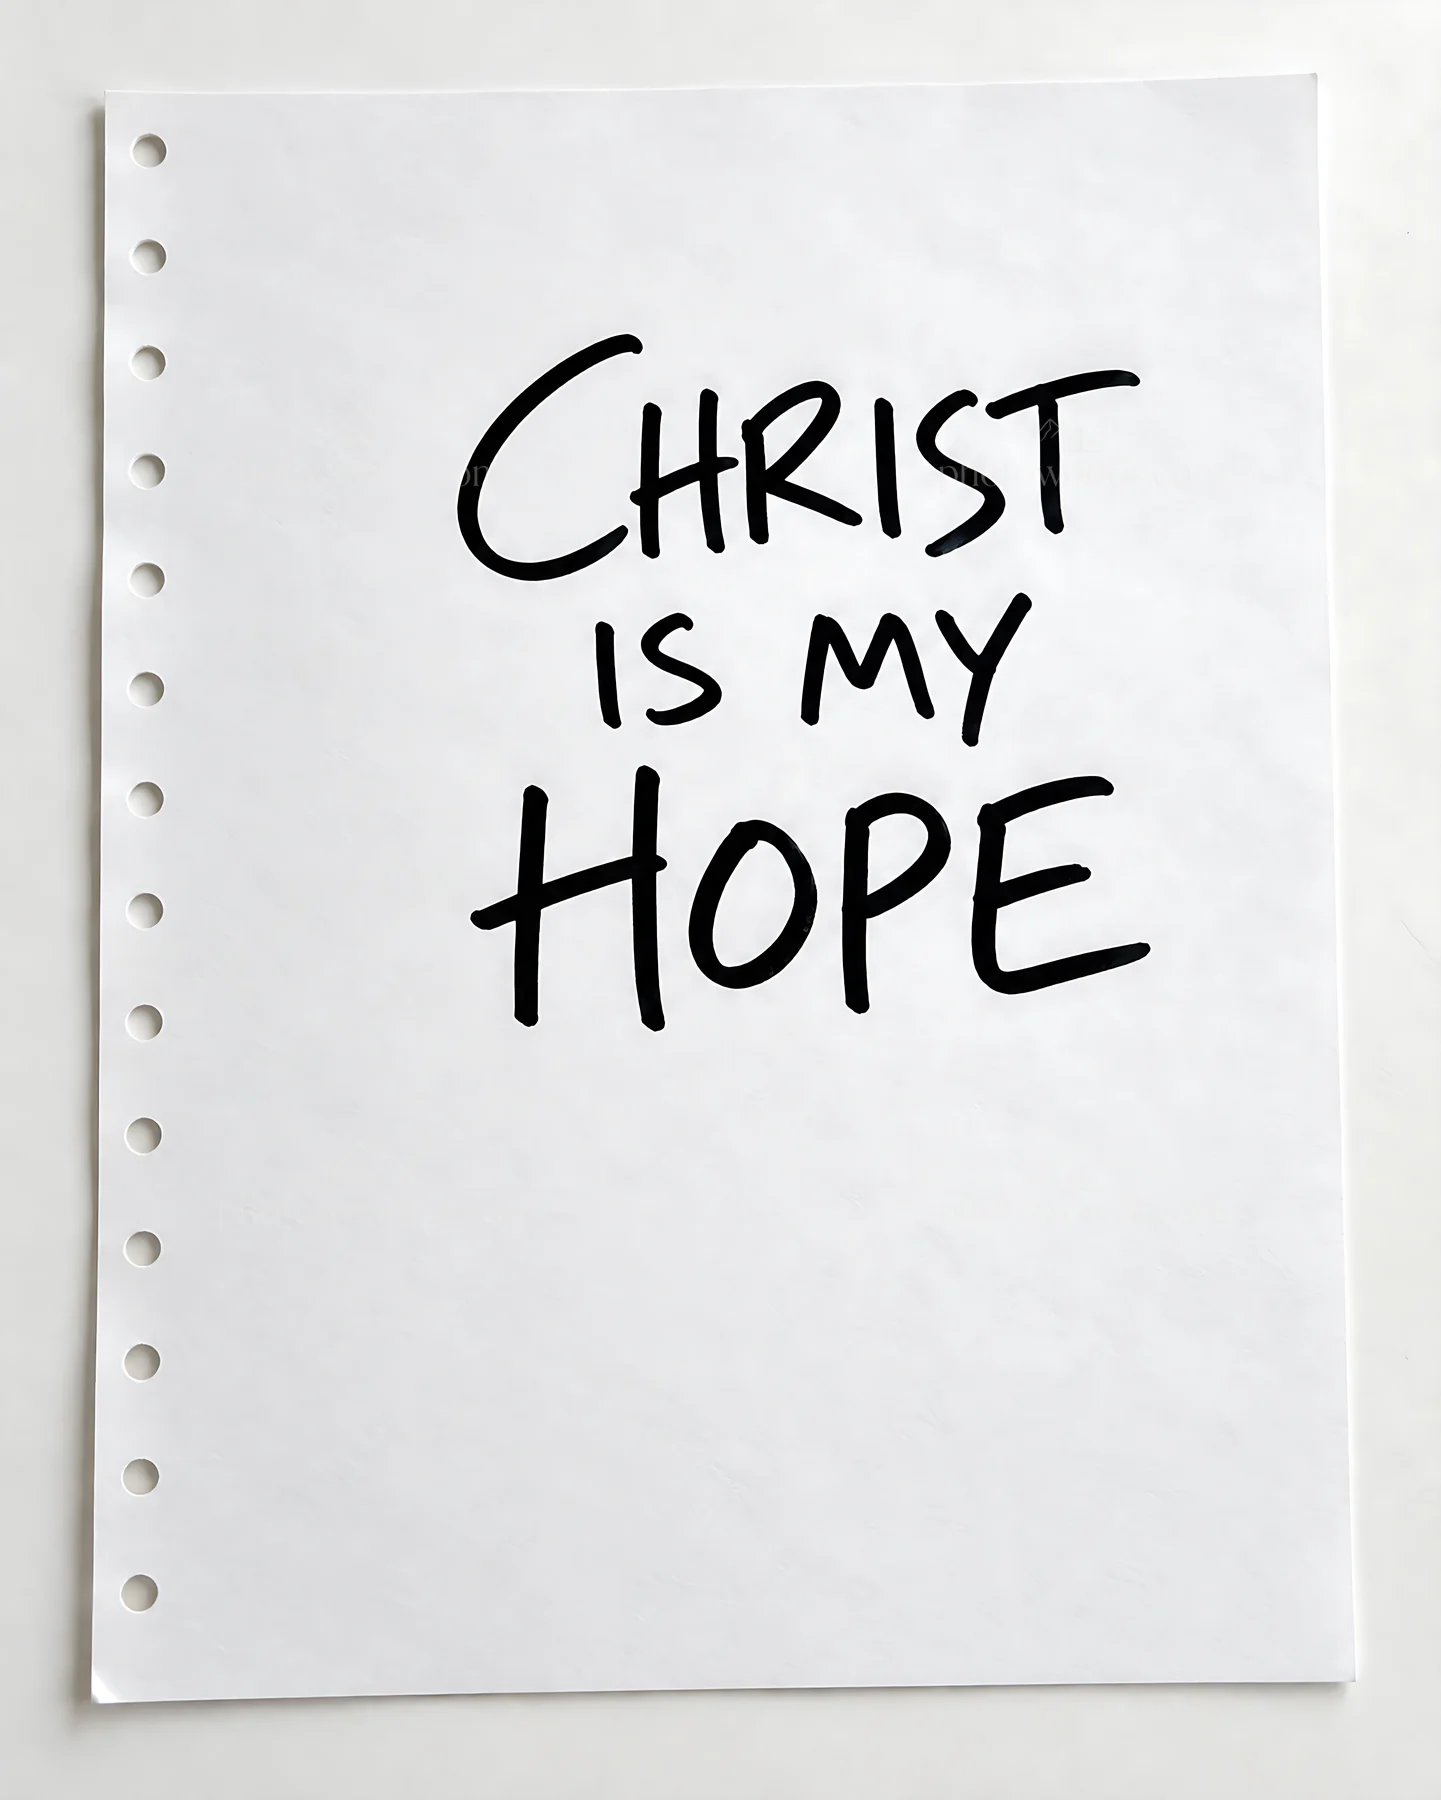 CHRIST
IS MY
HOPE